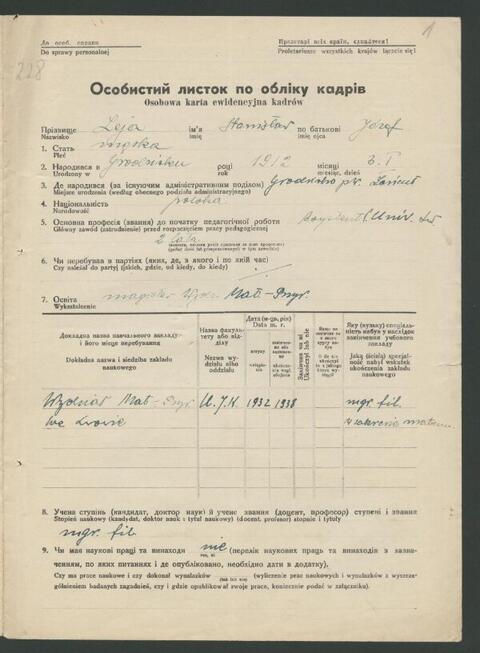 До особ. справи
Do sprawy personalnej
Пролетарі всіх країн, єднайтеся!
Proletariusze wszystkich krajów łączcie się!
1
228
Особистий листок по обліку кадрів
Osobowa karta ewidencyjna kadrów
Прізвище Leja ім'я Stanisław по батькові Józef
Nazwisko imię imię ojca
1. Стать męska
Płeć
2. Народився в Grodzisku році 1912 місяці 3.I
Urodzony w roku miesiąc, dzień
3. Де народився (за існуючим адміністративним поділом) Grodzisko pow. Łańcut
Miejsce urodzenia (według obecnego podziału administracyjnego)
4. Національність polska
Narodowość
5. Основна професія (звання) до початку педагогічної роботи asystent Univ.
Główny zawód (zatrudnienie) przed rozpoczęciem pracy pedagogicznej
2 lata
6. Чи перебував в партіях (яких, де, з якого і по який час)
Czy należał do partyj (jakich, gdzie, od kiedy, do kiedy)
7. Освіта magister Mat-
Wykształcenie
Докладна назва навчального закладу і його місце перебування
Dokładna nazwa i siedziba zakładu naukowego
Назва факультету або відділу
Nazwa wydziału albo oddziału
Дата (м-ць, рік)
Data m. r.
Яку (вузьку) спеціальність набув у наслідок закінчення учбового закладу
Jaką (ścisłą) specjalność nabył wskutek ukończenia zakładu naukowego
Wydział Mat- U.J.K. 1932 1938 mgr. fil.
we Lwowie w zakresie matem.
8. Учена ступінь (кандидат, доктор наук) й учене звання (доцент, професор) ступені і звання
Stopień naukowy (kandydat, doktor nauk i tytuł naukowy) (docent, profesor) stopnie i tytuły
mgr. fil.
9. Чи має наукові праці та винаходи nie (перелік наукових праць та винаходів з зазначенням,
по яких питаннях і де опубліковано, необхідно дати в додатку).
Czy ma prace naukowe i czy dokonał wynalazków (tak lub nie) (wyliczenie prac naukowych i wynalazków z wyszczególnieniem
badanych zagadnień, czy i gdzie opublikował swoje prace, koniecznie podać w załączniku).